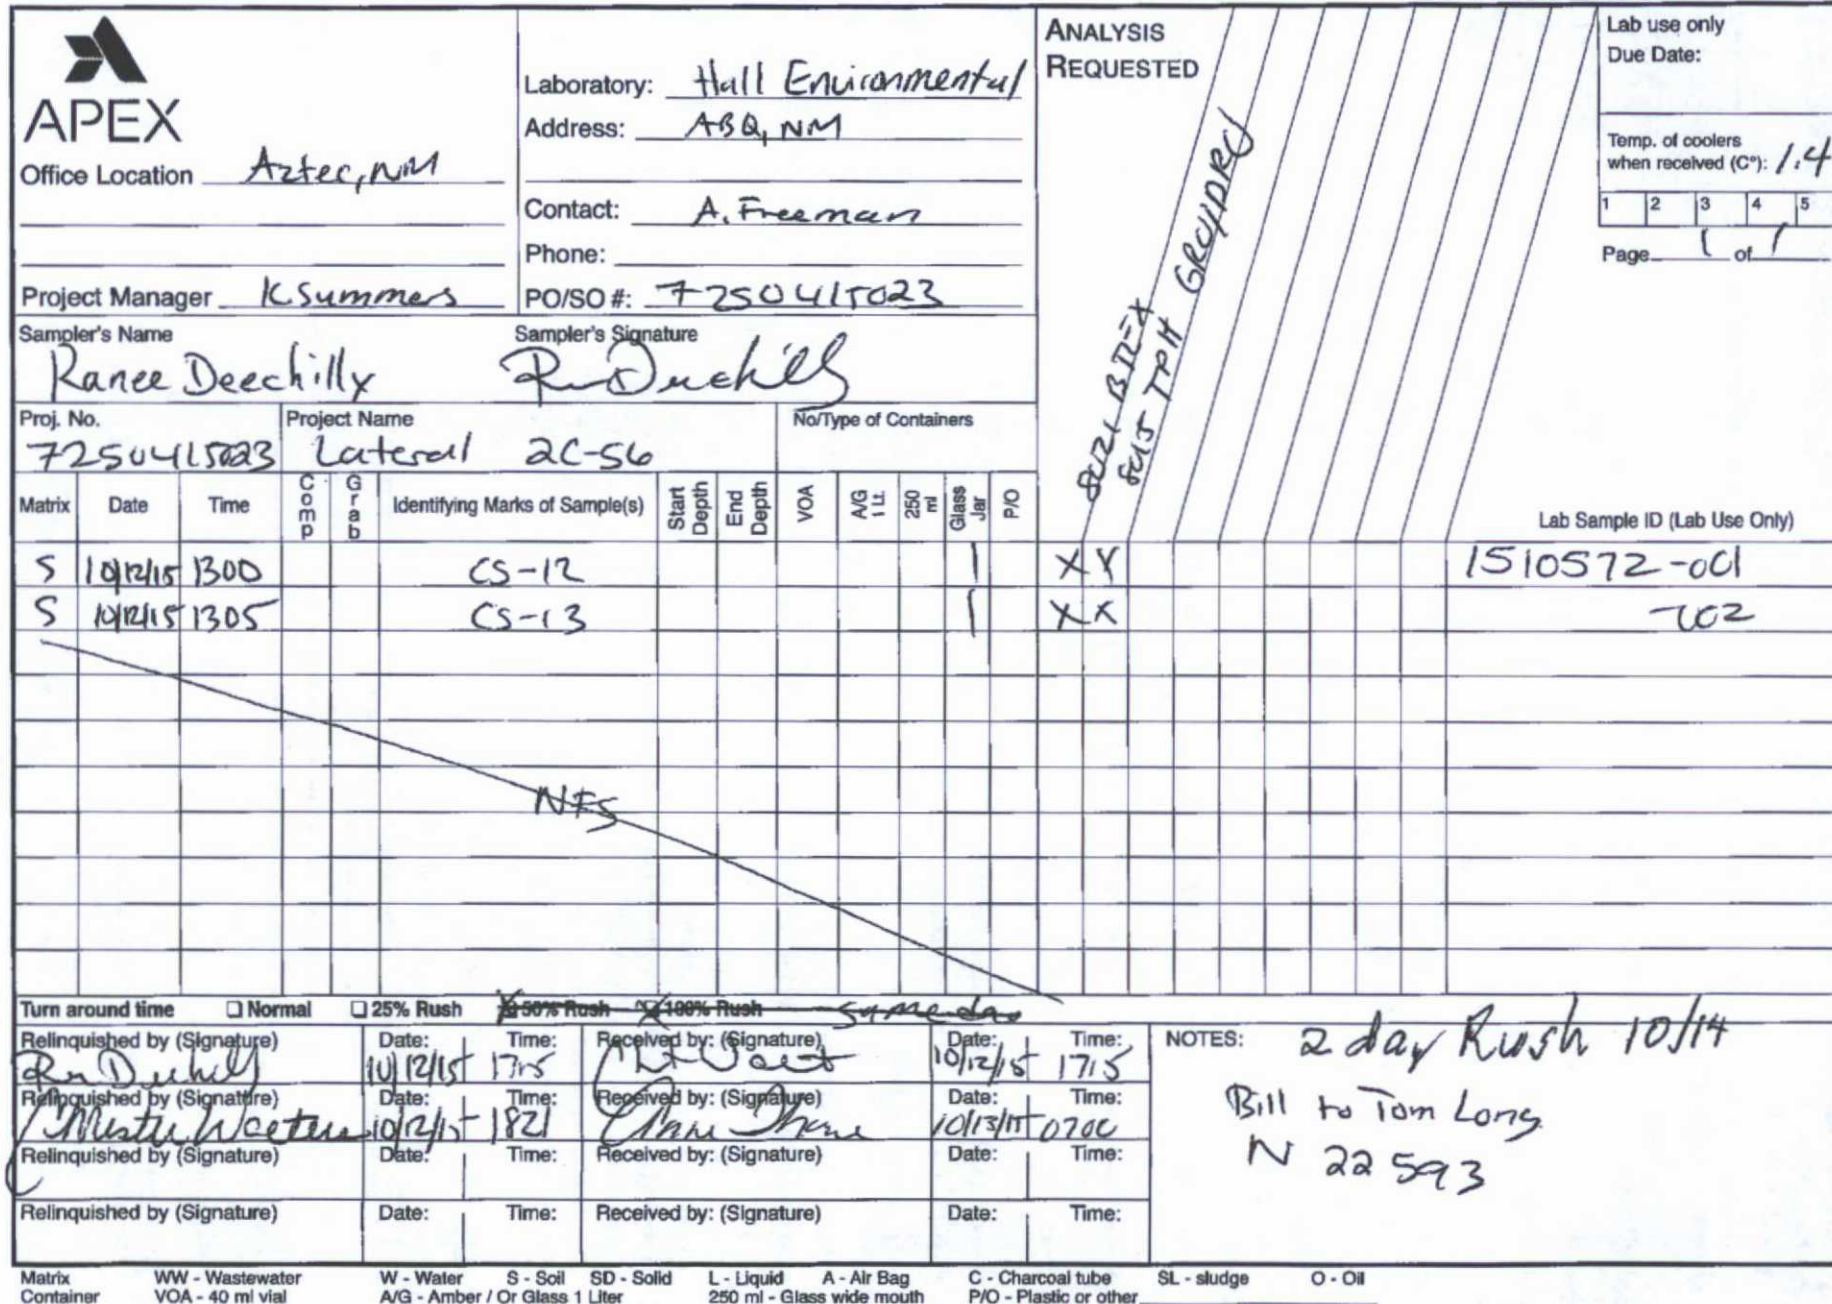 APEX
Office Location Aztec, NM
Project Manager K Summers
Laboratory: Hall Environmental
Address: ABQ, NM
Contact: A. Freeman
Phone:
PO/SO #: 7250415023
ANALYSIS
REQUESTED
8021 BTEX
8015 TPH GRO/DRO
Lab use only
Due Date:
Temp. of coolers
when received (C°): 1.4
1 2 3 4 5
Page 1 of 1
Sampler's Name
Ranee Deechilly
Sampler's Signature
Proj. No.
7250415023
Project Name
Lateral 2C-56
No/Type of Containers
Matrix Date Time Comp Grab Identifying Marks of Sample(s) Start Depth End Depth VOA A/G 1 Lt. 250 ml Glass Jar P/O Lab Sample ID (Lab Use Only)
S 10/12/15 1300 CS-12 1 X X 1510572-001
S 10/12/15 1305 CS-13 1 X X -002
NFS
Turn around time Normal 25% Rush 50% Rush 100% Rush same day
Relinquished by (Signature) Date: Time: Received by: (Signature) Date: Time:
10/12/15 1715 10/12/15 1715
Relinquished by (Signature) Date: Time: Received by: (Signature) Date: Time:
10/12/15 1821 10/13/15 0700
Relinquished by (Signature) Date: Time: Received by: (Signature) Date: Time:
Relinquished by (Signature) Date: Time: Received by: (Signature) Date: Time:
NOTES: 2 day Rush 10/14
Bill to Tom Long
N 22593
Matrix WW - Wastewater W - Water S - Soil SD - Solid L - Liquid A - Air Bag C - Charcoal tube SL - sludge O - Oil
Container VOA - 40 ml vial A/G - Amber / Or Glass 1 Liter 250 ml - Glass wide mouth P/O - Plastic or other